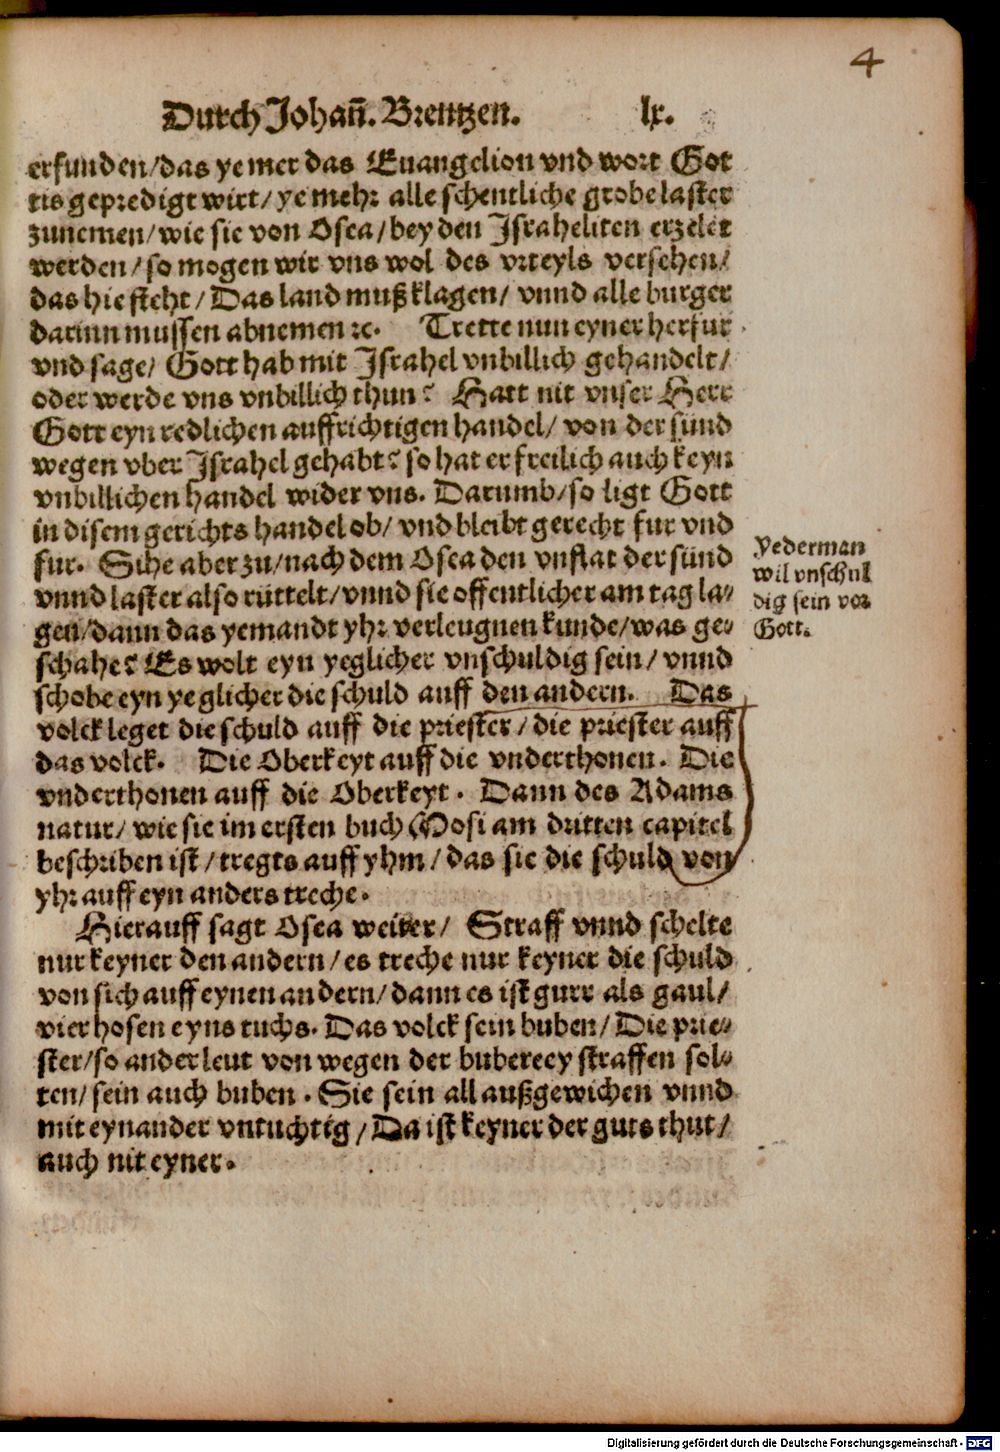 4
Durch Johañ. Brentzen. lx.
erfunden/das ye mer das Euangelion vnd wort Got
tis gepredigt wirt/ ye mehr alle schentliche grobe laster
zunemen/wie sie von Osea/bey den Israheliten erzelet
werden/so mogen wir vns wol des vrteyls versehen/
das hie steht/ Das land muß klagen/ vnnd alle burger
darinn mussen abnemen ꝛc. Trette nun eyner herfur
vnd sage/ Gott hab mit Israhel vnbillich gehandelt/
oder werde vns vnbillich thun? Hatt nit vnser Herr
Gott eyn redlichen auffrichtigen handel/ von der sünd
wegen vber Israhel gehabt? so hat er freilich auch keyn
vnbillichen handel wider vns. Darumb/so ligt Gott
in disem gerichts handel ob/ vnd bleibt gerecht fur vnd
fur. Sihe aber zu/nach dem Osea den vnflat der sünd
vnnd laster also rüttelt/vnnd sie offentlicher am tag la⸗
gen/dann das yemandt yhr verleugnen kunde/was ge⸗
schahe? Es wolt eyn yeglicher vnschuldig sein/ vnnd
schobe eyn yeglicher die schuld auff den andern. Das
volck leget die schuld auff die priester/die priester auff
das volck. Die Oberkeyt auff die vnderthonen. Die
vnderthonen auff die Oberkeyt. Dann des Adams
natur/ wie sie im ersten buch Mosi am dritten capitel
beschriben ist/tregts auff yhm/das sie die schuld von
yhr auff eyn anders treche.
Hierauff sagt Osea weiter/ Straff vnnd schelte
nur keyner den andern/es treche nur keyner die schuld
von sich auff eynen andern/dann es ist gurr als gaul/
vier hosen eyns tuchs. Das volck sein buben/Die prie⸗
ster/so ander leut von wegen der buberey straffen sol⸗
ten/sein auch buben. Sie sein all außgewichen vnnd
mit eynander vntuchtig/Da ist keyner der guts thut/
auch nit eyner.
Yederman
wil vnschul
dig sein vor
Gott.
Digitalisierung gefördert durch die Deutsche Forschungsgemeinschaft - DFG